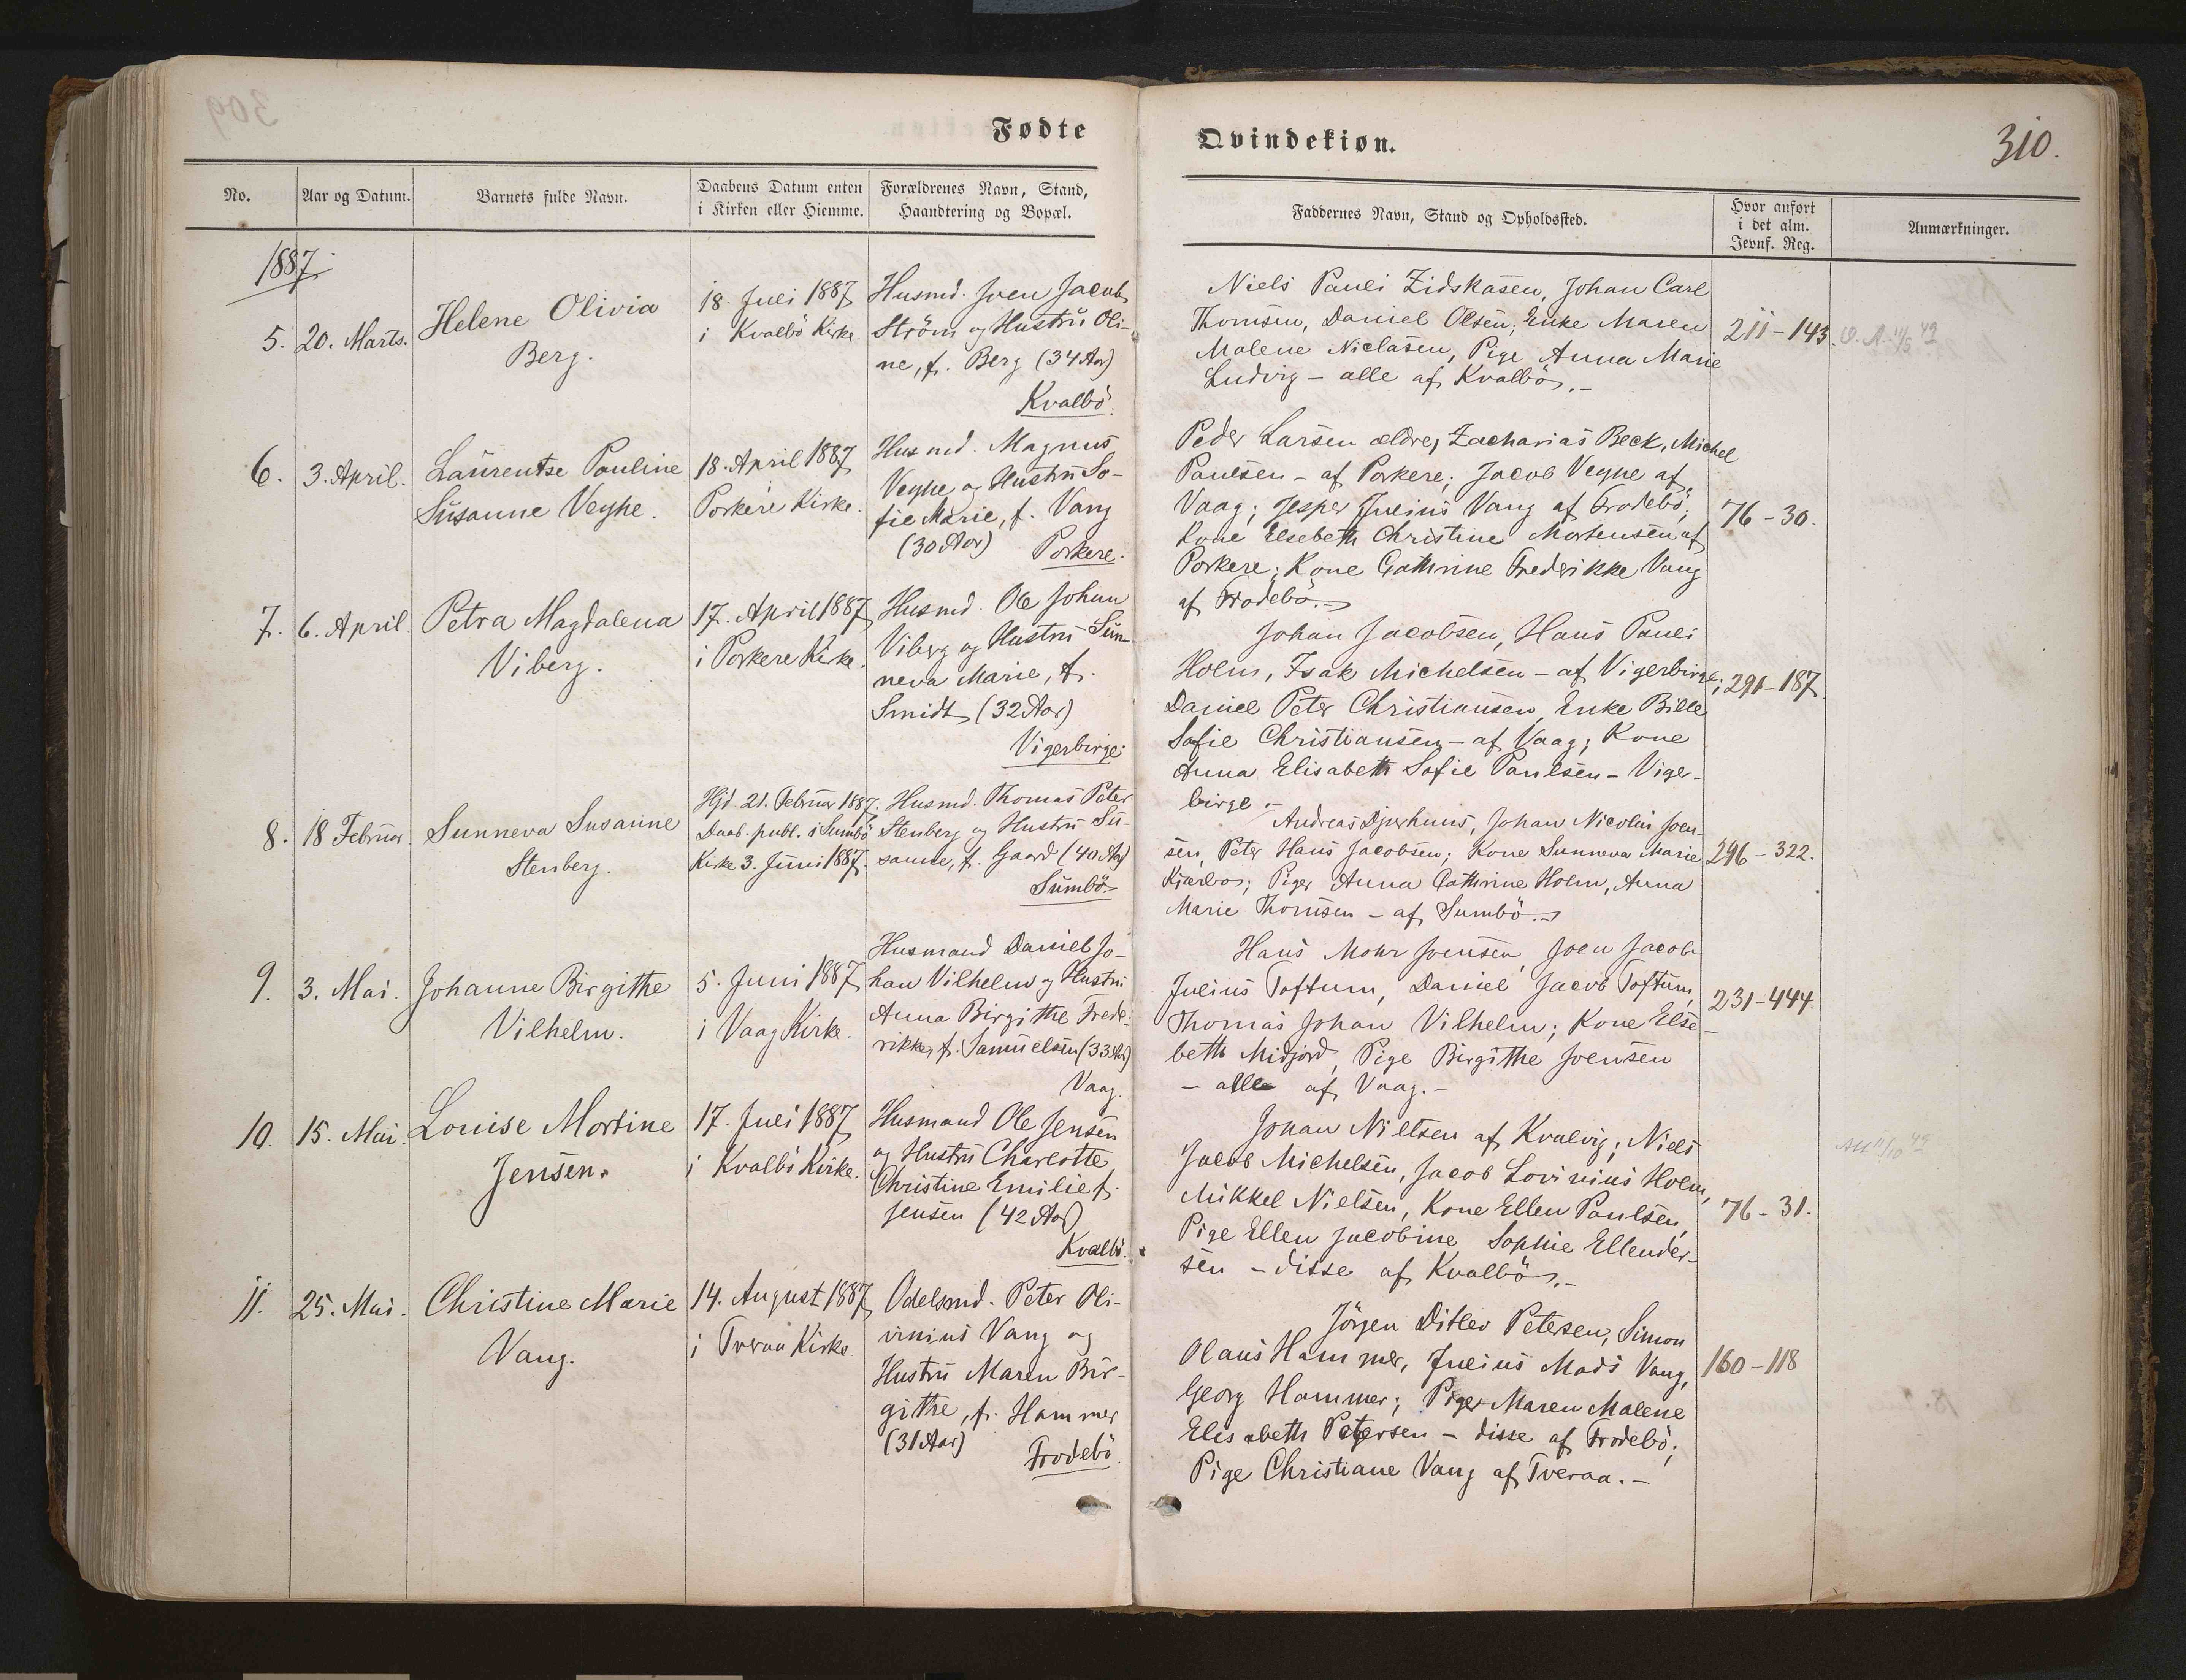 Fødte
Qvindekiøn.
310.
No.
Aar og Datum.
Barnets fulde Navn.
Daabens Datum enten
i Kirken eller Hiemme.
Forældrenes Navn, Stand,
Haandtering og Bopæl.
Faddernes Navn, Stand og Opholdssted.
Hvor anført
i det alm.
Jevnf. Reg.
Anmærkninger.
1887.
5.
20. Marts.
Helene Olivia
Berg.
18. Juli 1887
i Kvalbö Kirke
Husmd. Joen Jacob
Ström og Hustru Oli-
ne, f. Berg (34 Aar)
Kvalbö.
Niels Pauli Zidskasen, Johan Carl
Thomsen, Daniel Olsen; Enke Maren
Malene Niclasen, Pige Anna Marie
Ludvig - alle af Kvalbö.-
211-143.
6.
3. April.
Laurentse Pauline
Susanne Veyhe.
18. April 1887
Porkere Kirke.
Husmd. Magnus
Veyhe og Hustru So-
fie Marie, f. Vang
(30 Aar) Porkere.
Peder Larsen ældre, Zacharias Beck, Michel
Paulsen - af Porkere; Jacob Veyhe af
Vaag; Jesper Julius Vang af Frodebö;
Kone Elsebeth Christine Mortensen af
Porkere; Kone Cathrine Frederikke Vang
af Frodebö.-
76-30.
7.
6. April.
Petra Magdalena
Viberg.
17. April 1887
i Porkere Kirke.
Husmd. Ole Johan
Viberg og Hustru Sun-
neva Marie, f.
Smidt (32 Aar)
Vigerbirge.
Johan Jacobsen, Hans Pauli
Holm, Isak Michelsen - af Vigerbirge;
Daniel Peter Christiansen, Enke Bille
Sofie Christiansen - af Vaag; Kone
Anna Elisabeth Sofie Paulsen - Viger-
birge.-
291-187.
8.
18 Februar
Sunneva Susanne
Stenberg.
Hjd. 21. Februar 1887.
Daab. publ. i Sumbö
Kirke 3. Juni 1887.
Husmd. Thomas Peter
Stenberg og Hustru Su-
sanne, f. Gaard (40 Aar)
Sumbö
Andreas Djurhuus, Johan Nicolai Joen-
sen, Peter Hans Jacobsen; Kone Sunneva Marie
Kjærbo; Piger Anna Cathrine Holm, Anna
Marie Thomsen - af Sumbö.-
296-322.
9.
3. Mai.
Johanne Birgithe
Vilhelm.
5. Juni 1887
i Vaag Kirke.
Husmand Daniel Jo-
han Vilhelm og Hustru
Anna Birgithe Frede-
rikke, f. Samuelsen (33 Aar)
Vaag.
Hans Mohr Joensen, Joen Jacob
Julius Toftum, Daniel Jacob Toftum,
Thomas Johan Vilhelm; Kone Else-
beth Midjord, Pige Birgithe Joensen
- alle af Vaag.-
231-444.
10.
15. Mai.
Louise Mortine
Jensen.
17. Juli 1887
i Kvalbö Kirke.
Husmand Ole Jensen
og Hustru Charlotte
Christine Emilie f.
Jensen (42 Aar)
Kvalbö.
Johan Nilsen af Kvalvig; Niels
Jacob Michelsen, Jacob Lovinius Holm,
Mikkel Nielsen, Kone Ellen Paulsen,
Pige Ellen Jacobine Sophie Ellender-
sen - disse af Kvalbö.-
76-31.
11.
25. Mai.
Christine Marie
Vang.
14. August 1887
i Tveraa Kirke
Odelsmd. Peter Oli-
vinius Vang og
Hustru Maren Bir-
githe, f. Hammer
(31 Aar)
Frodebö.
Jörgen Ditlev Petersen, Simon
Olaus Hammer, Julius Mads Vang,
Georg Hammer; Piger Maren Malene
Elisabeth Petersen - disse af Frodebö;
Pige Christiane Vang af Tveraa.-
160-118